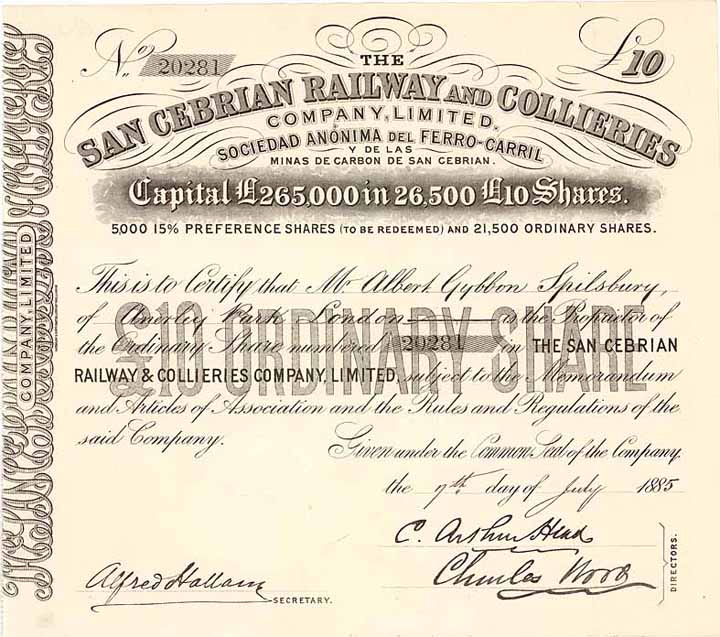 No. 20281
£10
THE
SAN CEBRIAN RAILWAY AND COLLIERIES
COMPANY, LIMITED.
SOCIEDAD ANÓNIMA DEL FERRO-CARRIL
Y DE LAS
MINAS DE CARBON DE SAN CEBRIAN.
Capital £265,000 in 26,500 £10 Shares.
5,000 15% PREFERENCE SHARES (TO BE REDEEMED) AND 21,500 ORDINARY SHARES.
£10 ORDINARY SHARE
This is to Certify that Mr. Albert Gybbon Spilsbury,
of Anerley Park London is the Proprietor of
the Ordinary Share numbered 20281 in THE SAN CEBRIAN
RAILWAY & COLLIERIES COMPANY, LIMITED, subject to the Memorandum
and Articles of Association and the Rules and Regulations of the
said Company.
Given under the Common Seal of the Company
the 7th day of July 1885
C. Arthur Head
Charles Wood
DIRECTORS.
Alfred Hallam
SECRETARY.
COMPANY, LIMITED